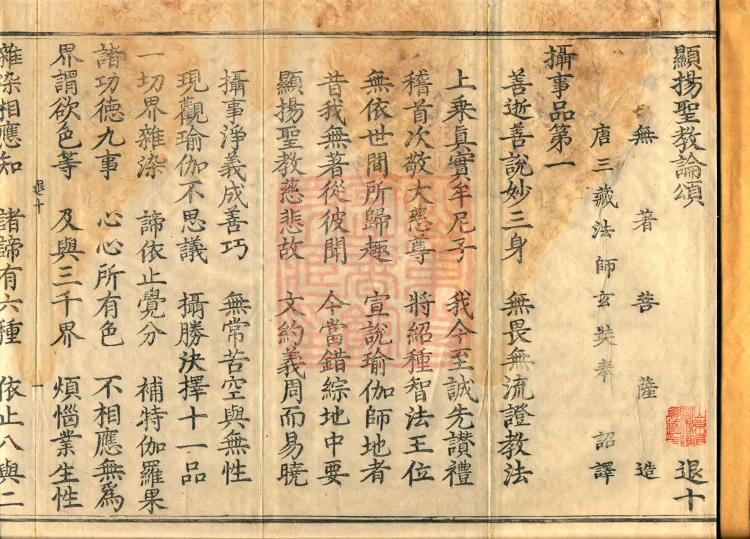 顯揚聖教論頌 退十
無著菩薩造
唐三藏法師玄奘奉 詔譯
攝事品第一
善逝善說妙三身 無畏無流證教法
上乘真實牟尼子 我今至誠先讚禮
稽首次敬大慈尊 將紹種智法王位
無依世間所歸趣 宣說瑜伽師地者
昔我無著從彼聞 今當錯綜地中要
顯揚聖教慈悲故 文約義周而易曉
攝事淨義成善巧 無常苦空與無性
現觀瑜伽不思議 攝勝決擇十一品
一切界雜染 諦依止覺分 補特伽羅果
諸功德九事 心心所有色 不相應無爲
界謂欲色等 及與三千界 煩惱業生性
退十 一
雜染相應知 諸諦有六種 依止八與二